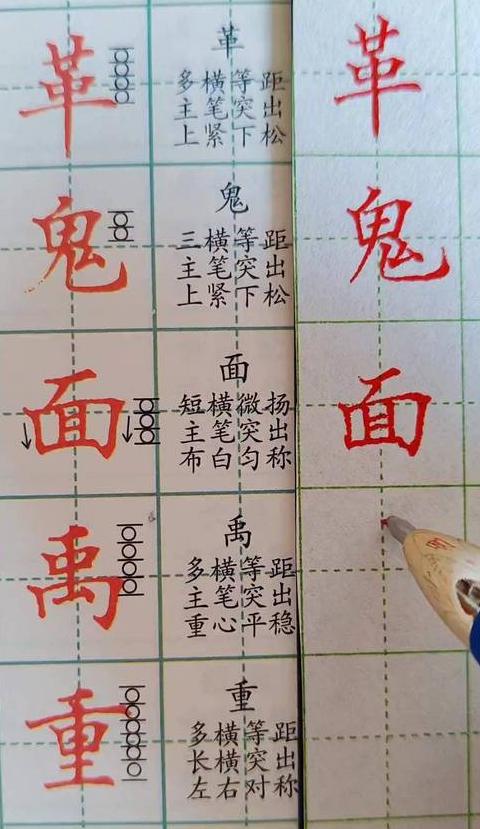 革
革
多横等距
主笔突出
上紧下松
革
鬼
鬼
三横等距
主笔突出
上紧下松
鬼
面
面
短横微扬
主笔突出
布白匀称
面
禹
禹
多横等距
主笔突出
重心平稳
重
重
多横等距
长横突出
左右对称